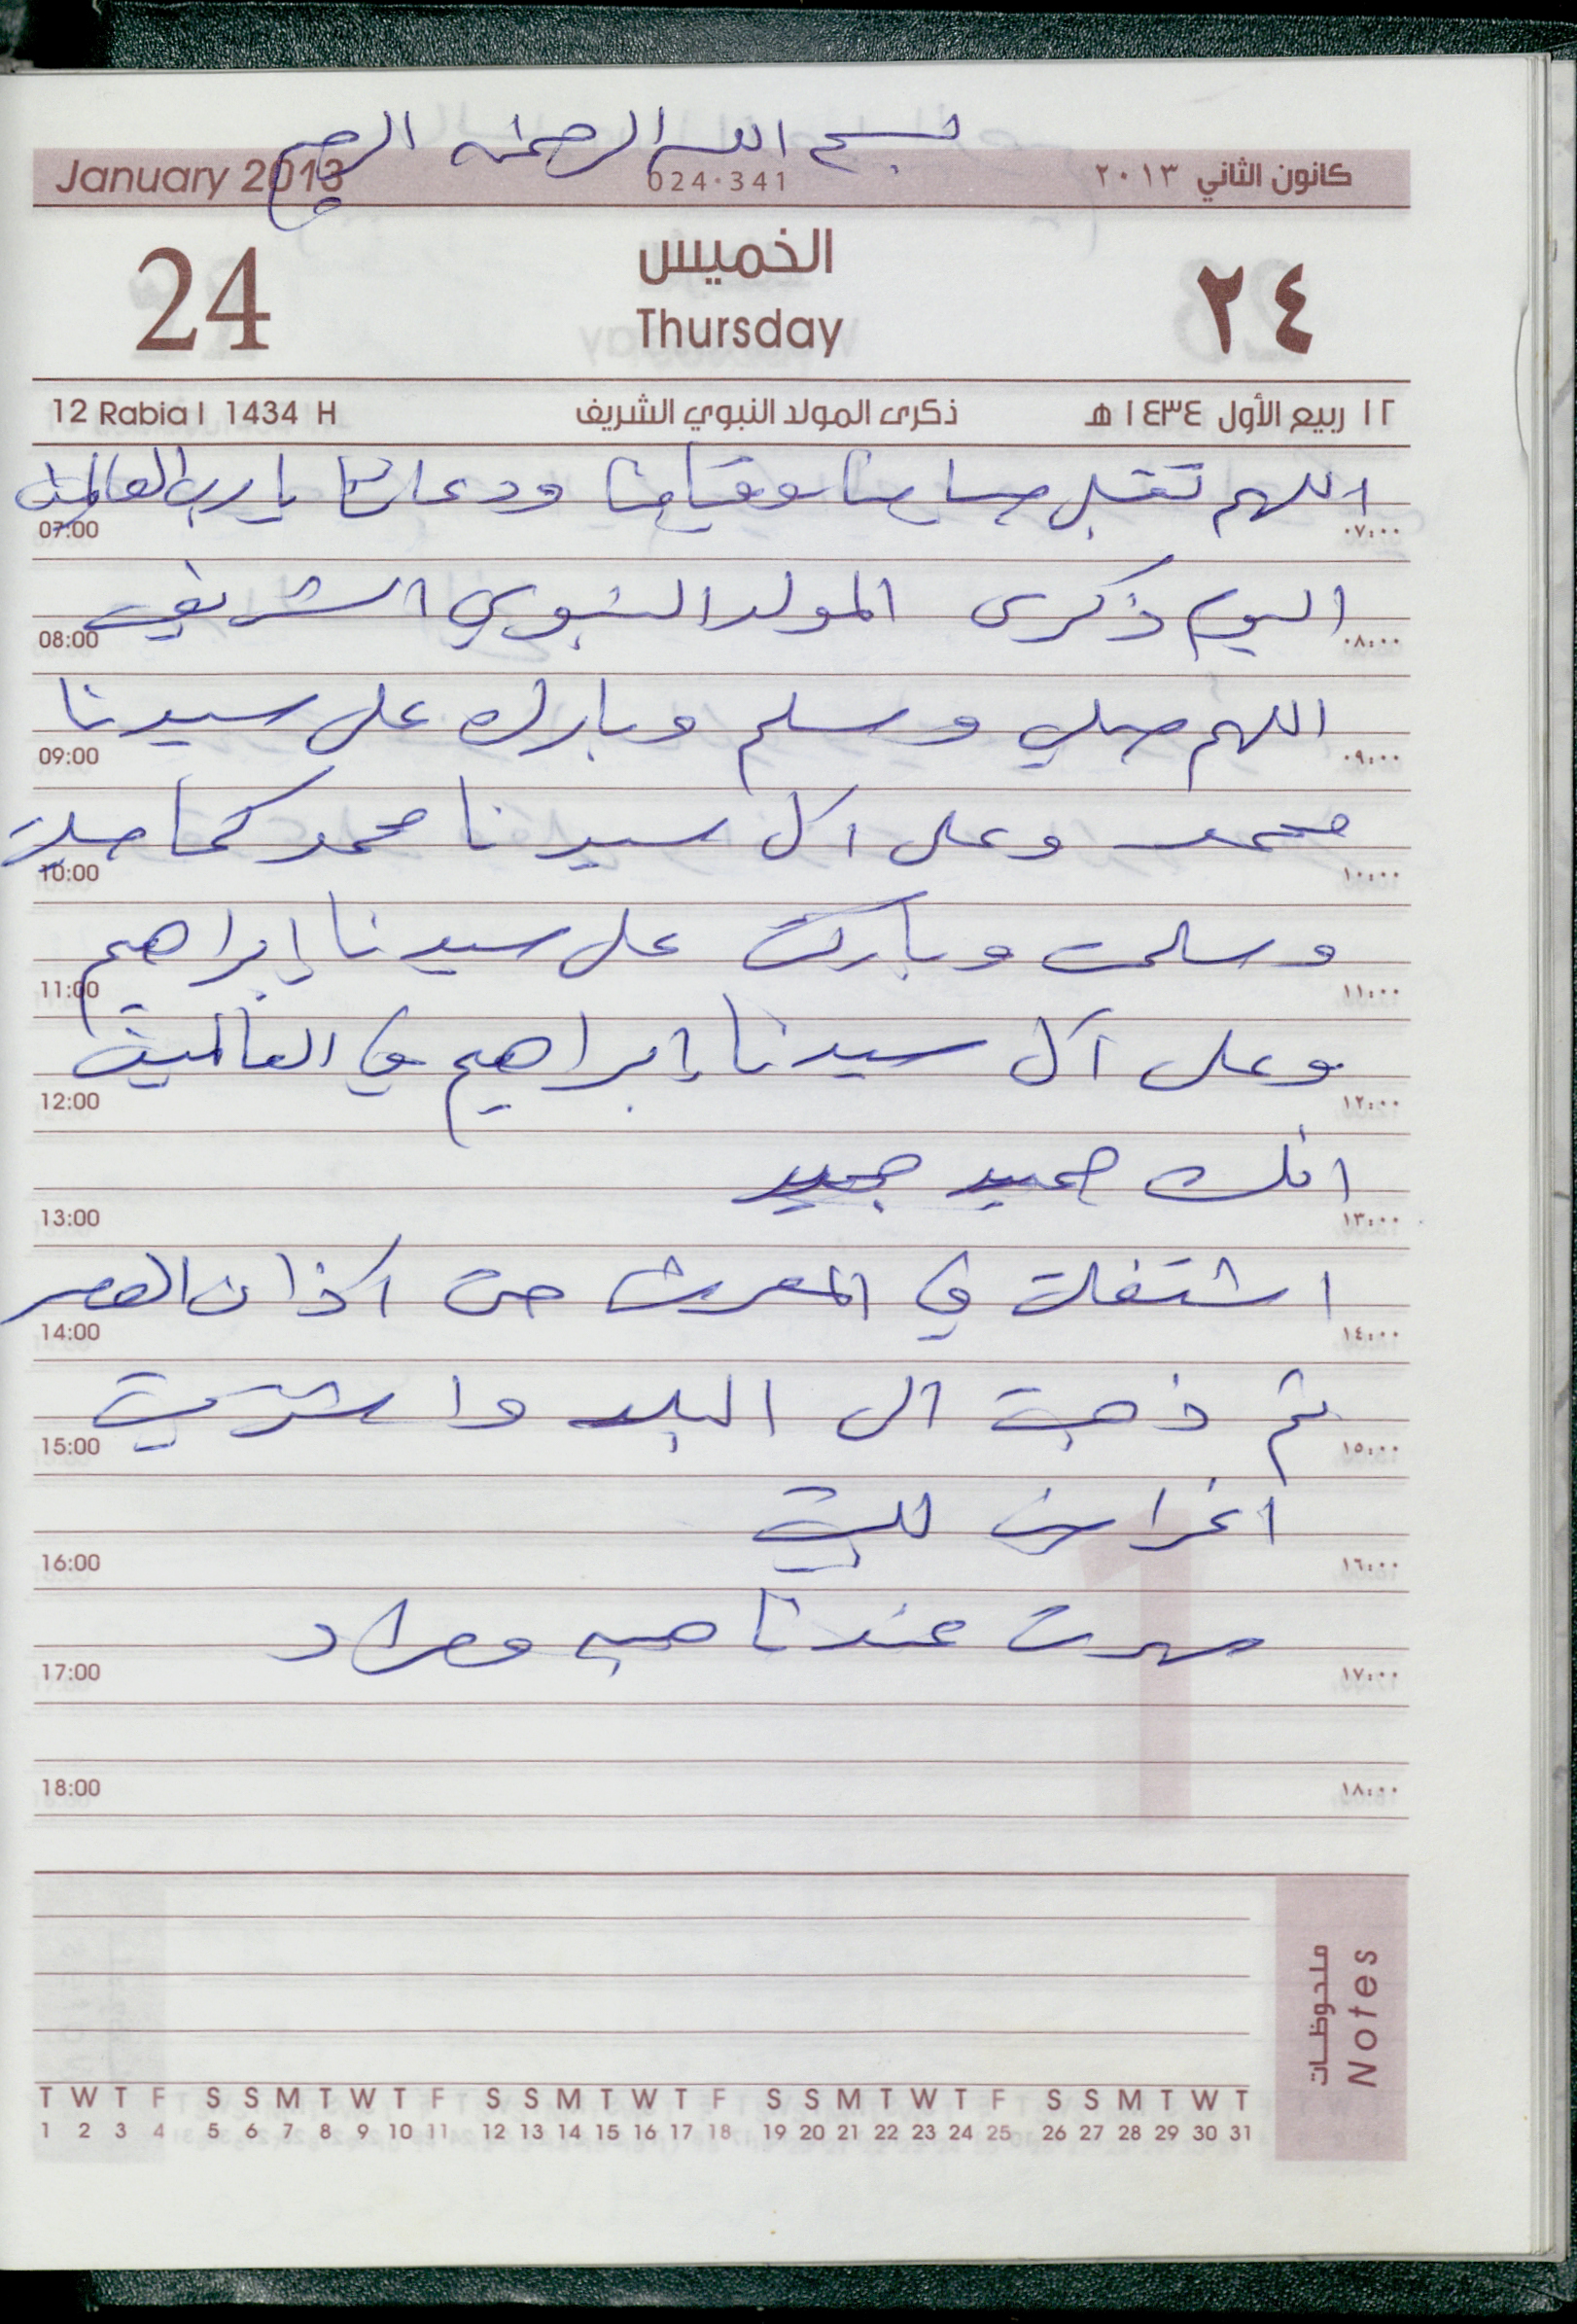 بسم الله الرحمن الرحيم
January 2013 024-341 كانون الثاني ٢٠١٣
24 الخميس ٢٤
Thursday
12 Rabia I 1434 H ذكرى المولد النبوي الشريف ١٢ ربيع الأول ١٤٣٤ هـ
اللهم تقبل صيامنا وقيامنا ودعائنا يا رب العالمين
07:00 ٠٧:٠٠
اليوم ذكرى المولد النبوي الشريف
08:00 ٠٨:٠٠
اللهم صلي وسلم وبارك على سيدنا
09:00 ٠٩:٠٠
محمد وعلى آل سيدنا محمد كما صليت
10:00 ١٠:٠٠
وسلمت وباركت على سيدنا إبراهيم
11:00 ١١:٠٠
وعلى آل سيدنا إبراهيم في العالمين
12:00 ١٢:٠٠
انك حميد مجيد
13:00 ١٣:٠٠
اشتغلت في المعرش حتى آذان العصر
14:00 ١٤:٠٠
ثم ذهبت الى البلد واشتريت
15:00 ١٥:٠٠
اغراض للبيت
16:00 ١٦:٠٠
سهرت عندنا هبه ومراد
17:00 ١٧:٠٠
18:00 ١٨:٠٠
ملحوظات
Notes
T W T F S S M T W T F S S M T W T F S S M T W T F S S M T W T
1 2 3 4 5 6 7 8 9 10 11 12 13 14 15 16 17 18 19 20 21 22 23 24 25 26 27 28 29 30 31